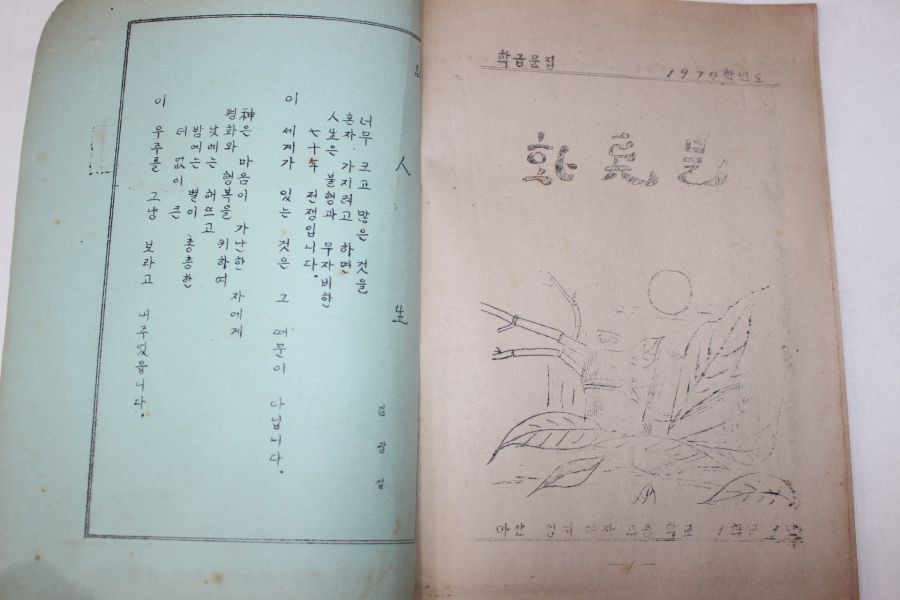 人生
김광섭
너무 크고 많은 것을
혼자 가지려고 하면
人生은 불행과 무자비한
七十年 전쟁입니다.
이 세계가 있는 것은 그 때문이 아닙니다.
神은 마음이 가난한 자에게
평화와 행복을 위하여
낮에는 해뜨고
밤에는 별이 총총한
더 없이 큰
이 우주를 그냥 보라고 내주었읍니다.
학급문집
1974학년도
마산 성지여자고등학교 1학년